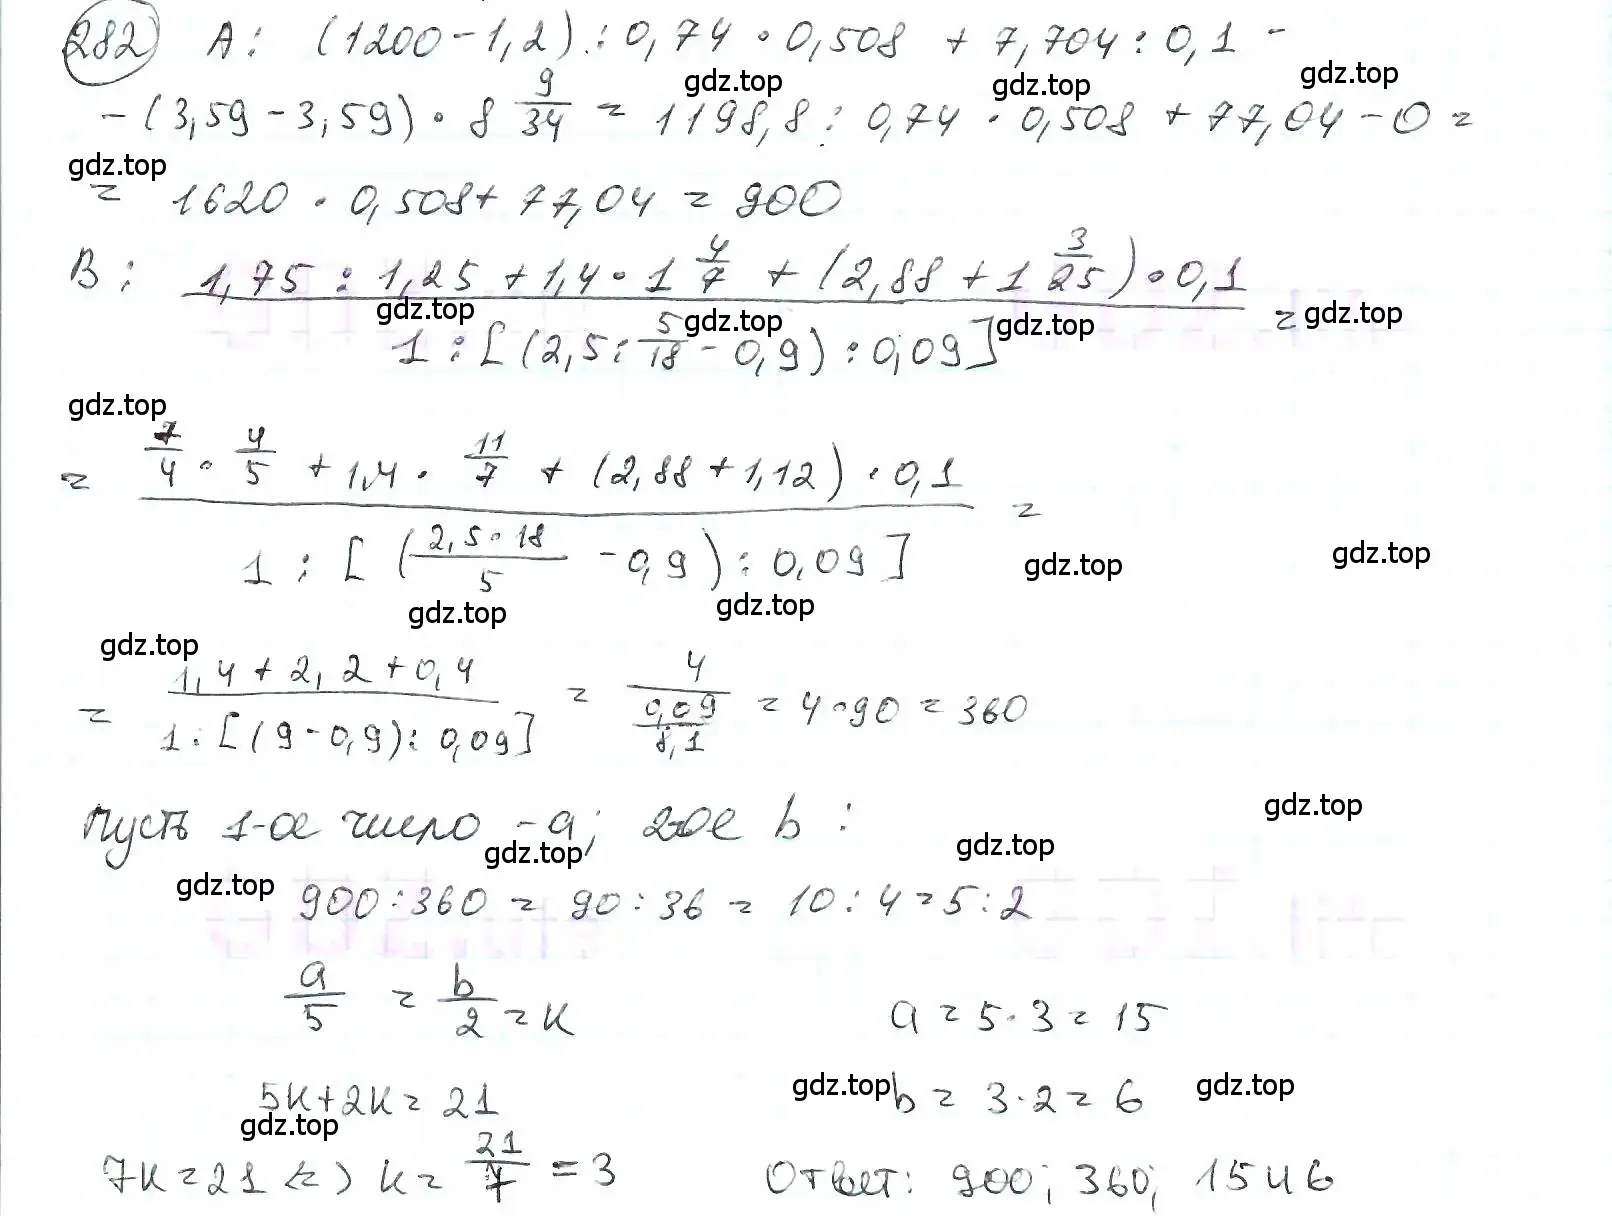 282 А: (1200 - 1,2) : 0,74 · 0,508 + 7,704 : 0,1 -
gdz.top gdz.top gdz.top
- (3,59 - 3,59) · 8 9/34 = 1198,8 : 0,74 · 0,508 + 77,04 - 0 =
gdz.top
= 1620 · 0,508 + 77,04 = 900
В: (1,75 : 1,25 + 1,4 · 1 4/7 + (2,88 + 1 3/25) · 0,1) / (1 : [(2,5 : 5/18 - 0,9) : 0,09]) =
gdz.top gdz.top gdz.top gdz.top
gdz.top
= (7/4 · 4/5 + 1,4 · 11/7 + (2,88 + 1,12) · 0,1) / (1 : [(2,5 · 18 / 5 - 0,9) : 0,09]) =
gdz.top gdz.top
gdz.top gdz.top
gdz.top
= (1,4 + 2,2 + 0,4) / (1 : [(9 - 0,9) : 0,09]) = 4 / (0,09 / 8,1) = 4 · 90 = 360
gdz.top
Пусть 1-ое число - a; 2-ое b :
gdz.top gdz.top
gdz.top
900 : 360 = 90 : 36 = 10 : 4 = 5 : 2
a/5 = b/2 = к
a = 5 · 3 = 15
5к + 2к = 21
gdz.top b = 3 · 2 = 6 gdz.top
gdz.top
7к = 21 <=> к = 21/7 = 3
Ответ: 900; 360; 15 и 6